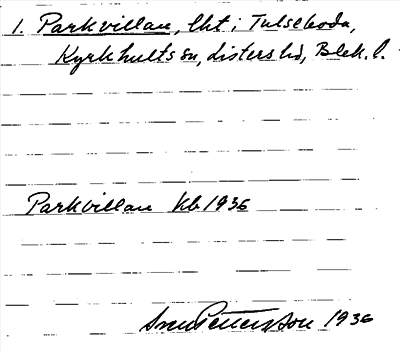 1. Parkvillan, lht i Tulseboda,
Kyrkhults sn, Listers hd, Blek. l.
Parkvillan Kb 1936
Pettersson 1936